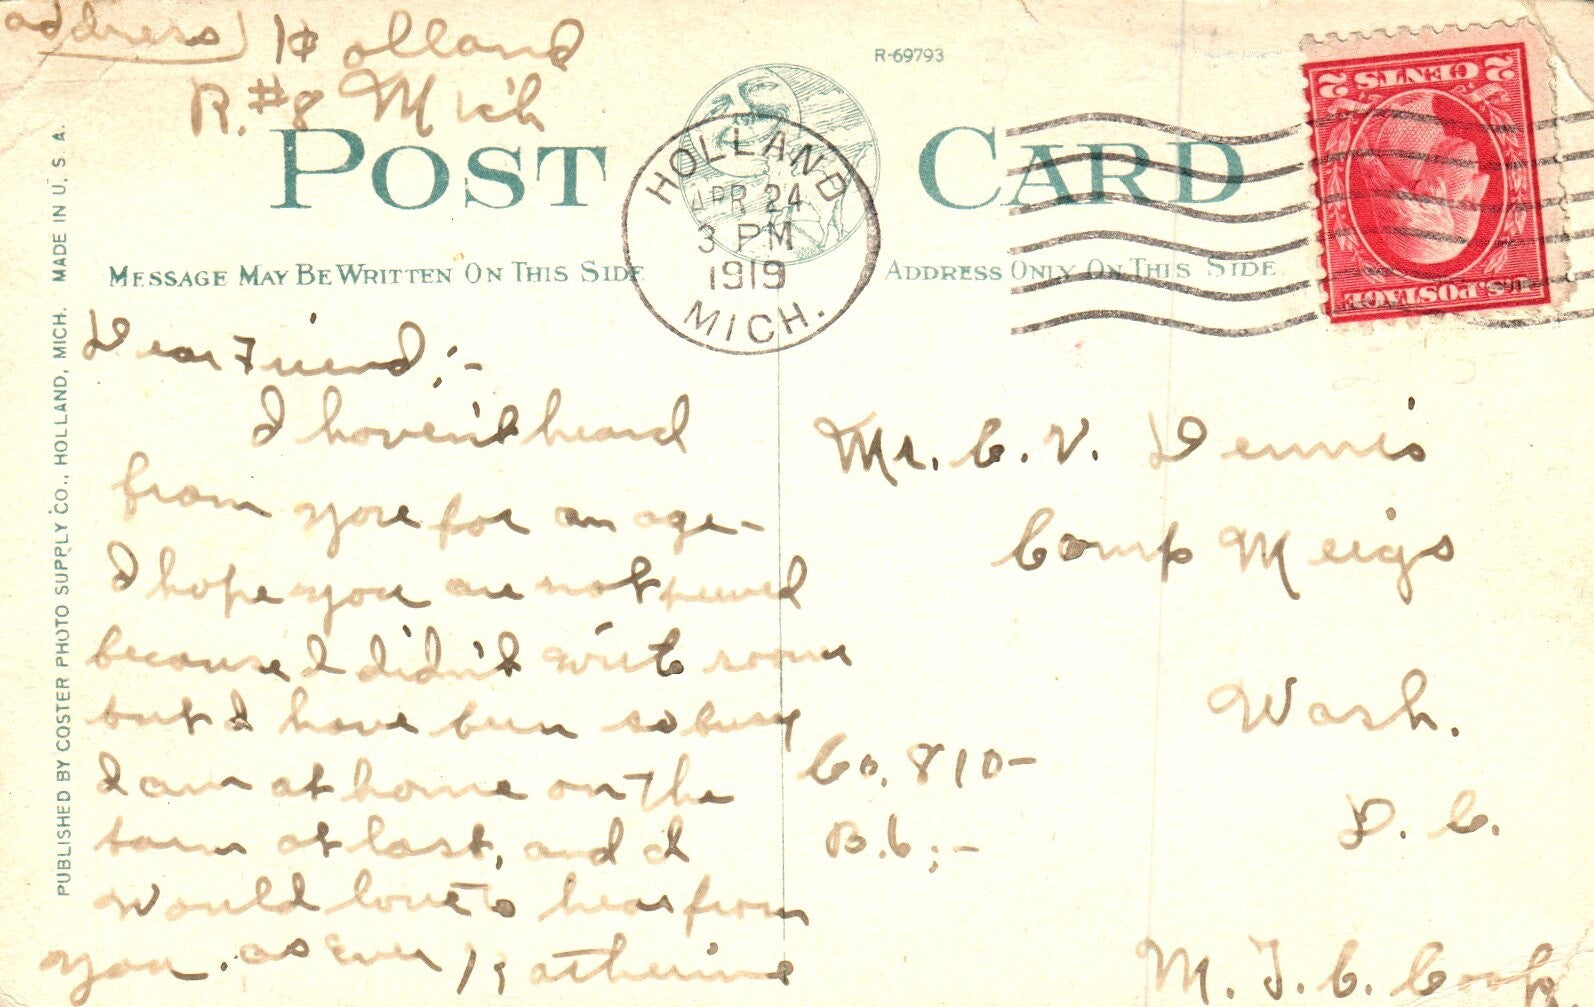 address) Holland
R.#8 Mich
R-69793
POST CARD
MESSAGE MAY BE WRITTEN ON THIS SIDE
ADDRESS ONLY ON THIS SIDE
HOLLAND
APR 24
3 PM
1919
MICH.
2 CENTS 2
U.S. POSTAGE
PUBLISHED BY COSTER PHOTO SUPPLY CO., HOLLAND, MICH. MADE IN U. S. A.
Dear Friend;-
I haven't heard
from you for an age-
I hope you are not peeved
because I didn't write sooner
but I have been so busy
I am at home on the
farm at last, and I
would love to hear from
you. as ever Katherine
Mr. C. V. Dennis
Camp Meigs
Wash.
D. C.
Co. 810-
B.6;-
M. T. C. Corp